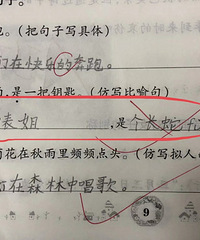 。(把句子写具体)
们在快乐的奔跑。
,是一把钥匙。(仿写比喻句)
表姐,是个长蛇
花在秋雨里频频点头。(仿写拟人
在森林中唱歌。
9